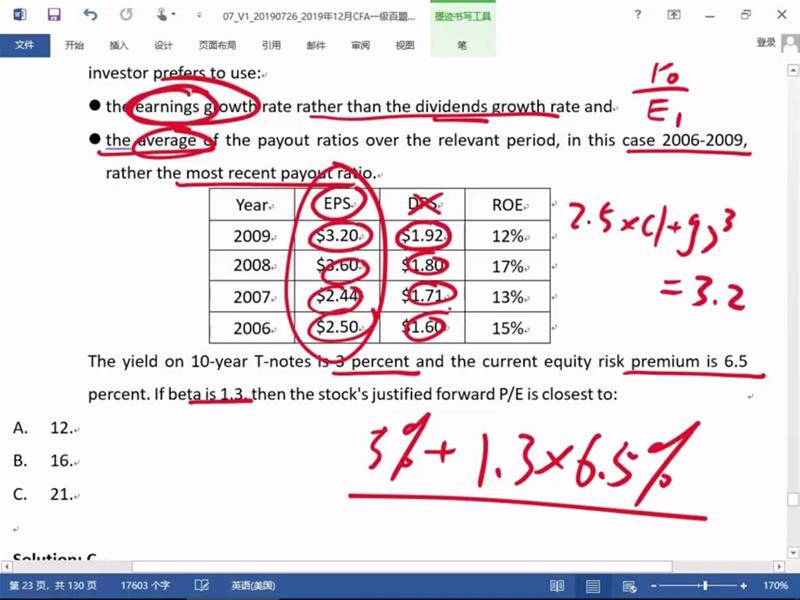 07_V1_20190726_2019年12月CFA一级百题...
墨迹书写工具
文件 开始 插入 设计 页面布局 引用 邮件 审阅 视图 笔 登录
investor prefers to use:
● the earnings growth rate rather than the dividends growth rate and
P₀
E₁
● the average of the payout ratios over the relevant period, in this case 2006-2009,
rather the most recent payout ratio.
Year EPS DPS ROE
2009 $3.20 $1.92 12%
2008 $3.60 $1.80 17%
2007 $2.44 $1.71 13%
2006 $2.50 $1.60 15%
2.5×(1+g)³
=3.2
The yield on 10-year T-notes is 3 percent and the current equity risk premium is 6.5
percent. If beta is 1.3, then the stock's justified forward P/E is closest to:
A. 12.
B. 16.
C. 21.
3%+1.3×6.5%
Solution: C
第 23 页，共 130 页 17603 个字 英语(美国) 170%